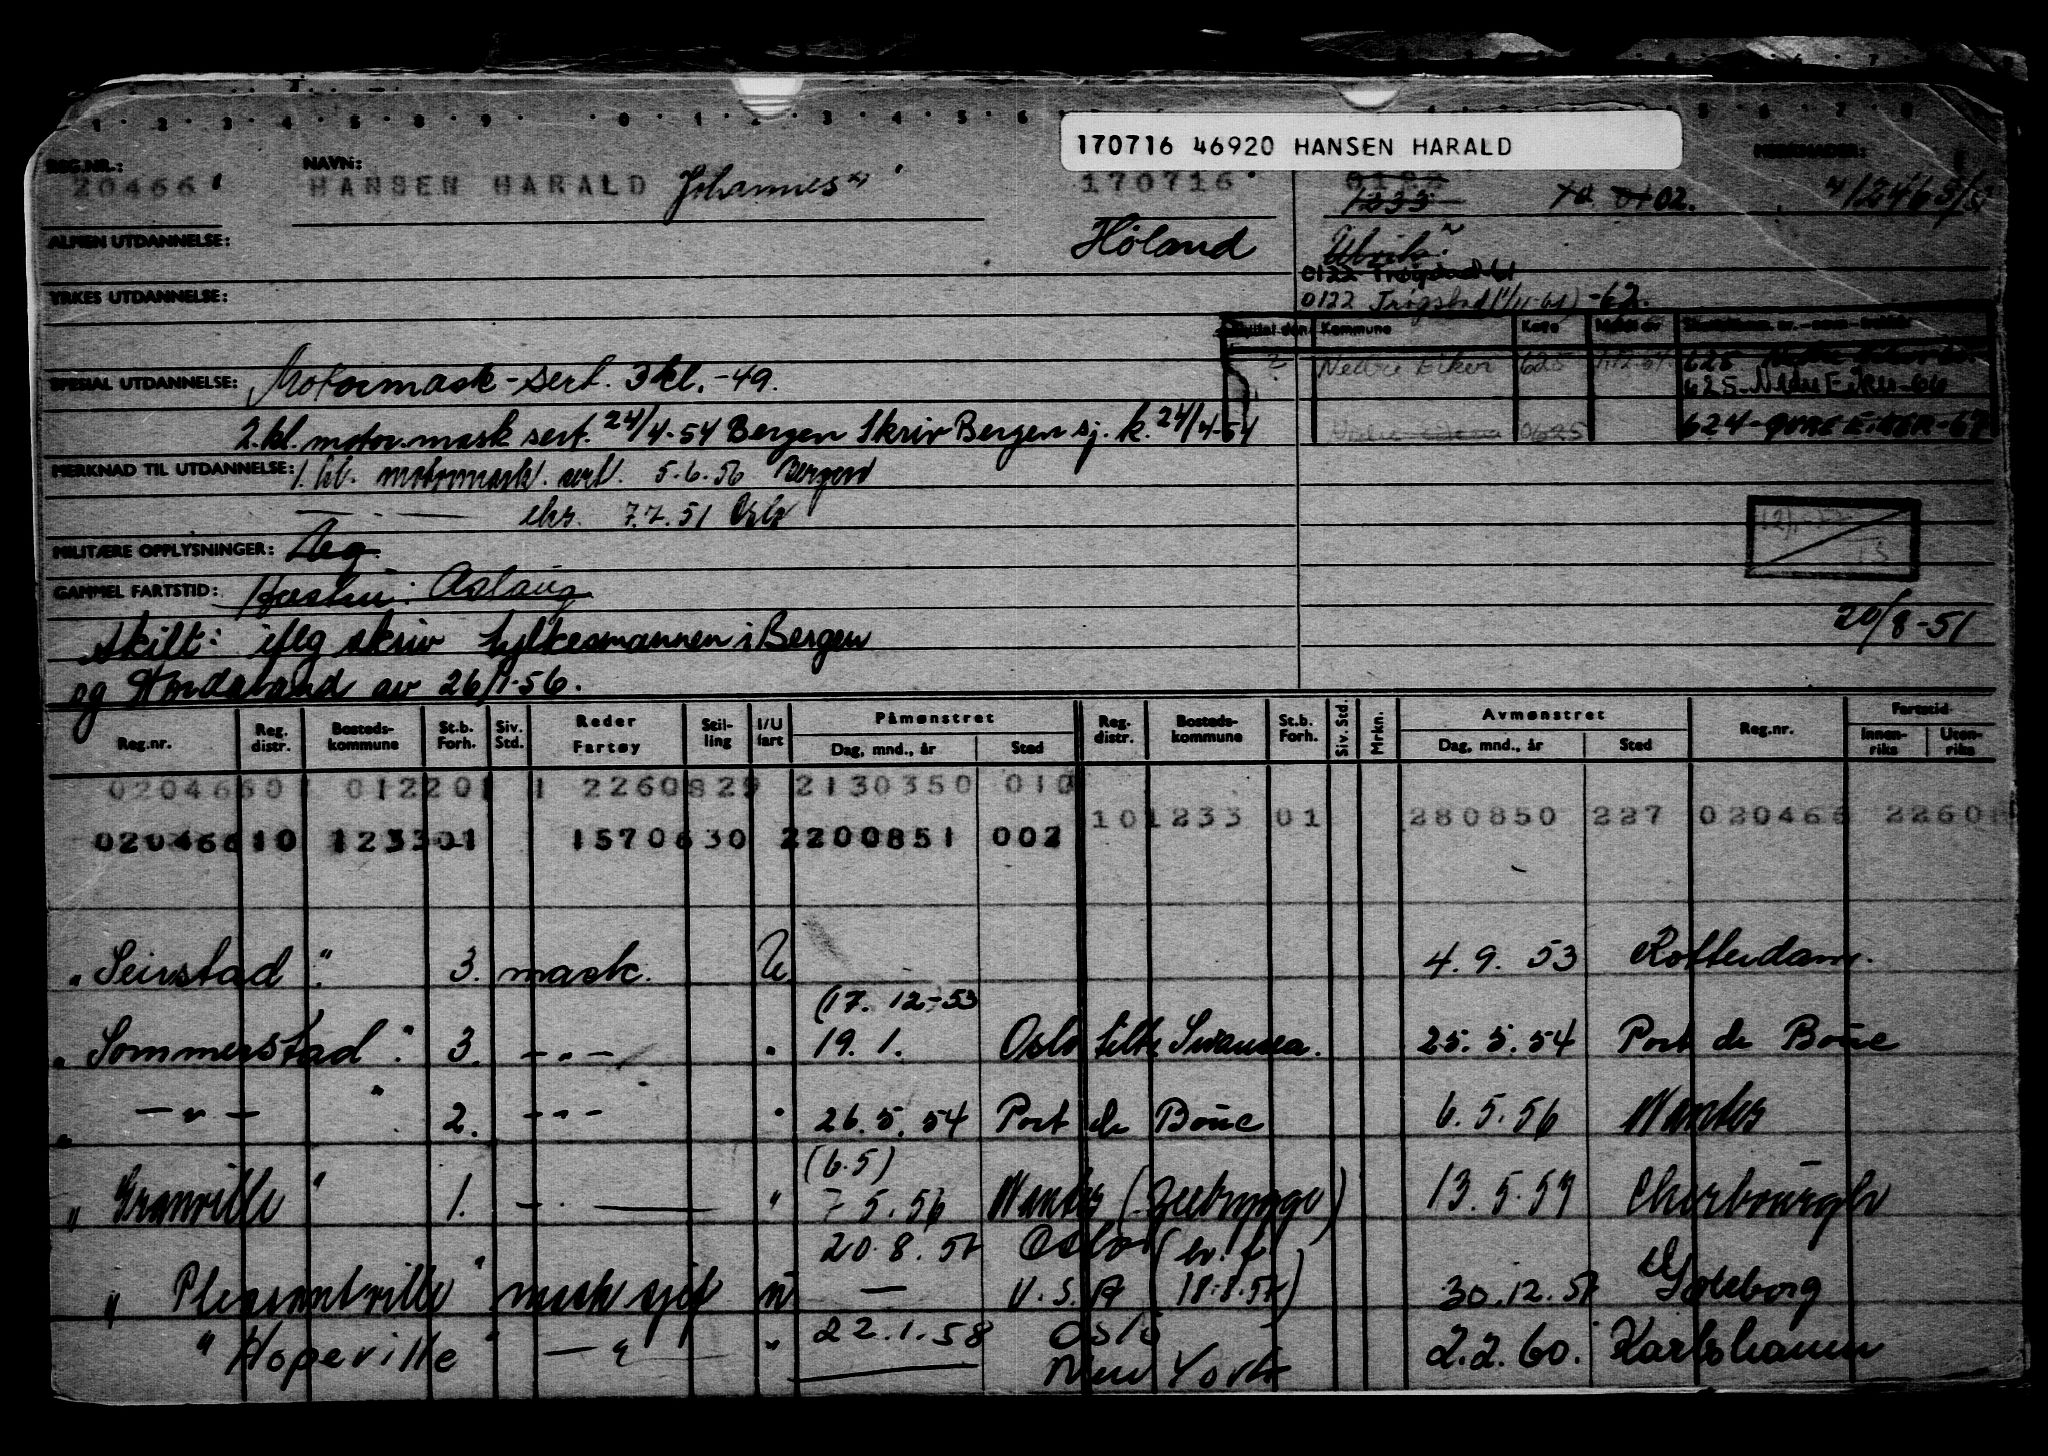 170716 46920 HANSEN HARALD
REG.NR.: NAVN: MERKNADER:
20466 HANSEN HARALD Johannes 170716
1233 02.
ALMEN UTDANNELSE: Høland Ulvik
0122 Trøgstad 61
YRKES UTDANNELSE: 0122 Trøgstad -62.
Kommune
Nedre Eiker 625
SPESIAL UTDANNELSE: Motormask-sert. 3kl.-49. 625 Nedre Eiker-66
2.kl. motor.mask sert. 24/4-54 Bergen Skriv Bergen sj.k. 24/4-54 624-ØVRE EIKER-67
MERKNAD TIL UTDANNELSE: 1. kl. motormask. sert. 5.6.56 Bergen
7.7.51 Oslo
MILITÆRE OPPLYSNINGER:
GAMMEL FARTSTID: Hustru: Aslaug
Skilt: iflg skriv fylkesmannen i Bergen 20/8-51
og Hordaland av 26/1-56.
Reg.nr. Reg. distr. Bosteds-kommune St.b. Forh. Siv. Std. Reder Fartøy Stil-ling I/U fart Påmønstret Dag, mnd., år Sted Reg. distr. Bosteds-kommune St.b. Forh. Siv. Std. Mrkn. Avmønstret Dag, mnd., år Sted Reg.nr. Fartstid Innen-riks Uten-riks
020466 01 012201 1 2260829 2130350 010
101233 01 280850 227 020466 2260
020466 10 123301 1570630 2200851 002
"Seirstad" 3. mask. U 4.9.53 Rotterdam.
(17.12-53
"Sommerstad". 3. -"- " 19.1. Oslo tilk Swansea. 25.5.54 Port de Bouc
" -"- " 2. -"- " 26.5.54 Port de Bouc 6.5.56 Nantes
(6.5)
"Granville" 1. -"- " 7 5.56 Nantes (Zeebrygge) 13.5.57 Cherbourgh
20.8.57 Oslo
"Pleasantville" mask sjef u — U.S.A 18.8.57) 30.12.57 Göteborg
22.1.58 Oslo
"Hopeville" -"- " New York 2.2.60. Karlshamn